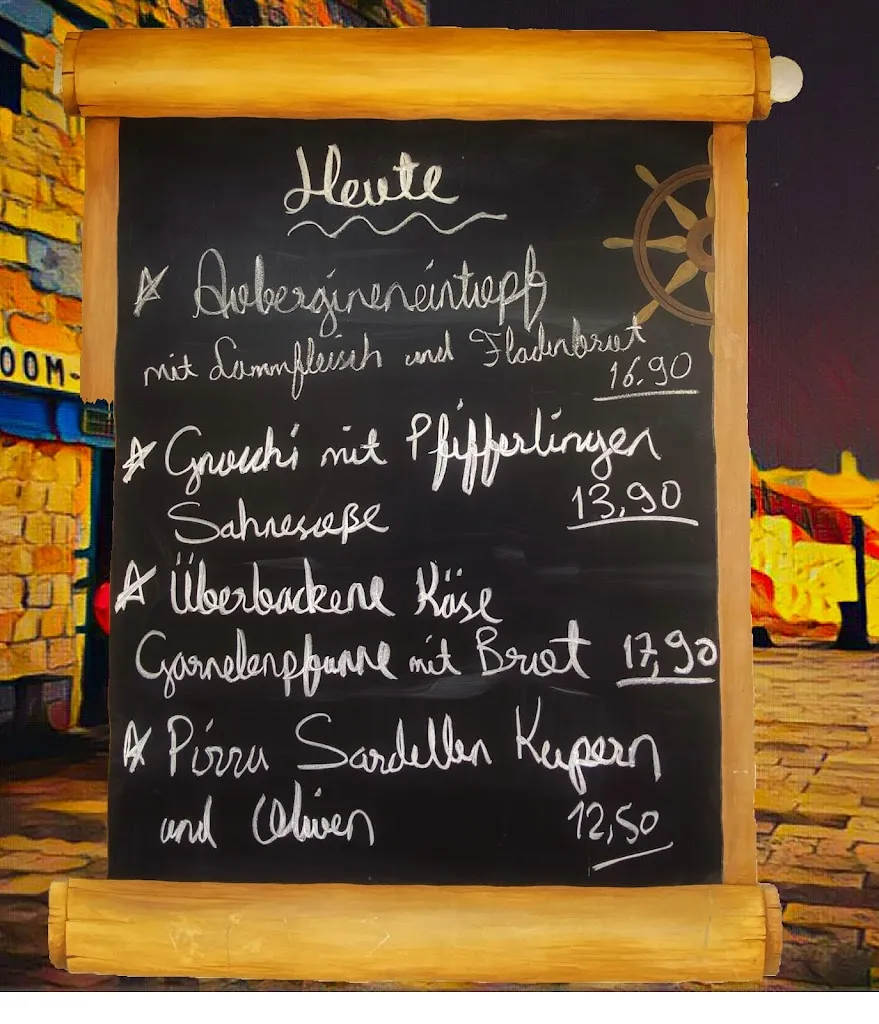 Heute
Aubergineneintopf
mit Lammfleisch und Fladenbrot
16.90
OOM-
Gnocchi mit Pfifferlingen
Sahnesoße 13,90
Überbackene Käse
Garnelenpfanne mit Brot 17,90
Pizza Sardellen Kapern
und Oliven 12,50